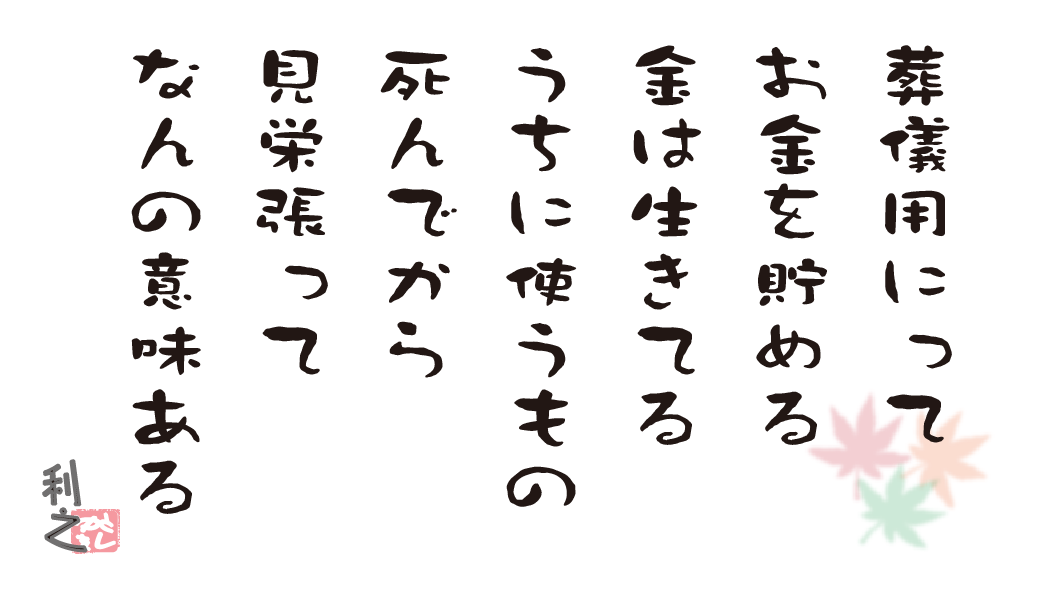 葬儀用にって
お金を貯める
金は生きてる
うちに使うもの
死んでから
見栄張って
なんの意味ある
利之